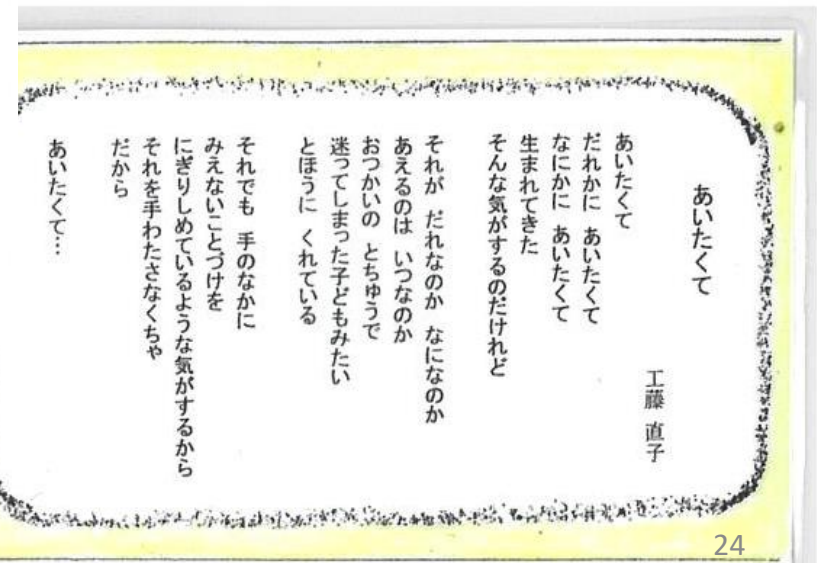 あいたくて
工藤 直子
あいたくて
だれかに あいたくて
なにかに あいたくて
生まれてきた
そんな気がするのだけれど
それが だれなのか なになのか
あえるのは いつなのか
おつかいの とちゅうで
迷ってしまった子どもみたい
とほうに くれている
それでも 手のなかに
みえないことづけを
にぎりしめているような気がするから
それを手わたさなくちゃ
だから
あいたくて…
24